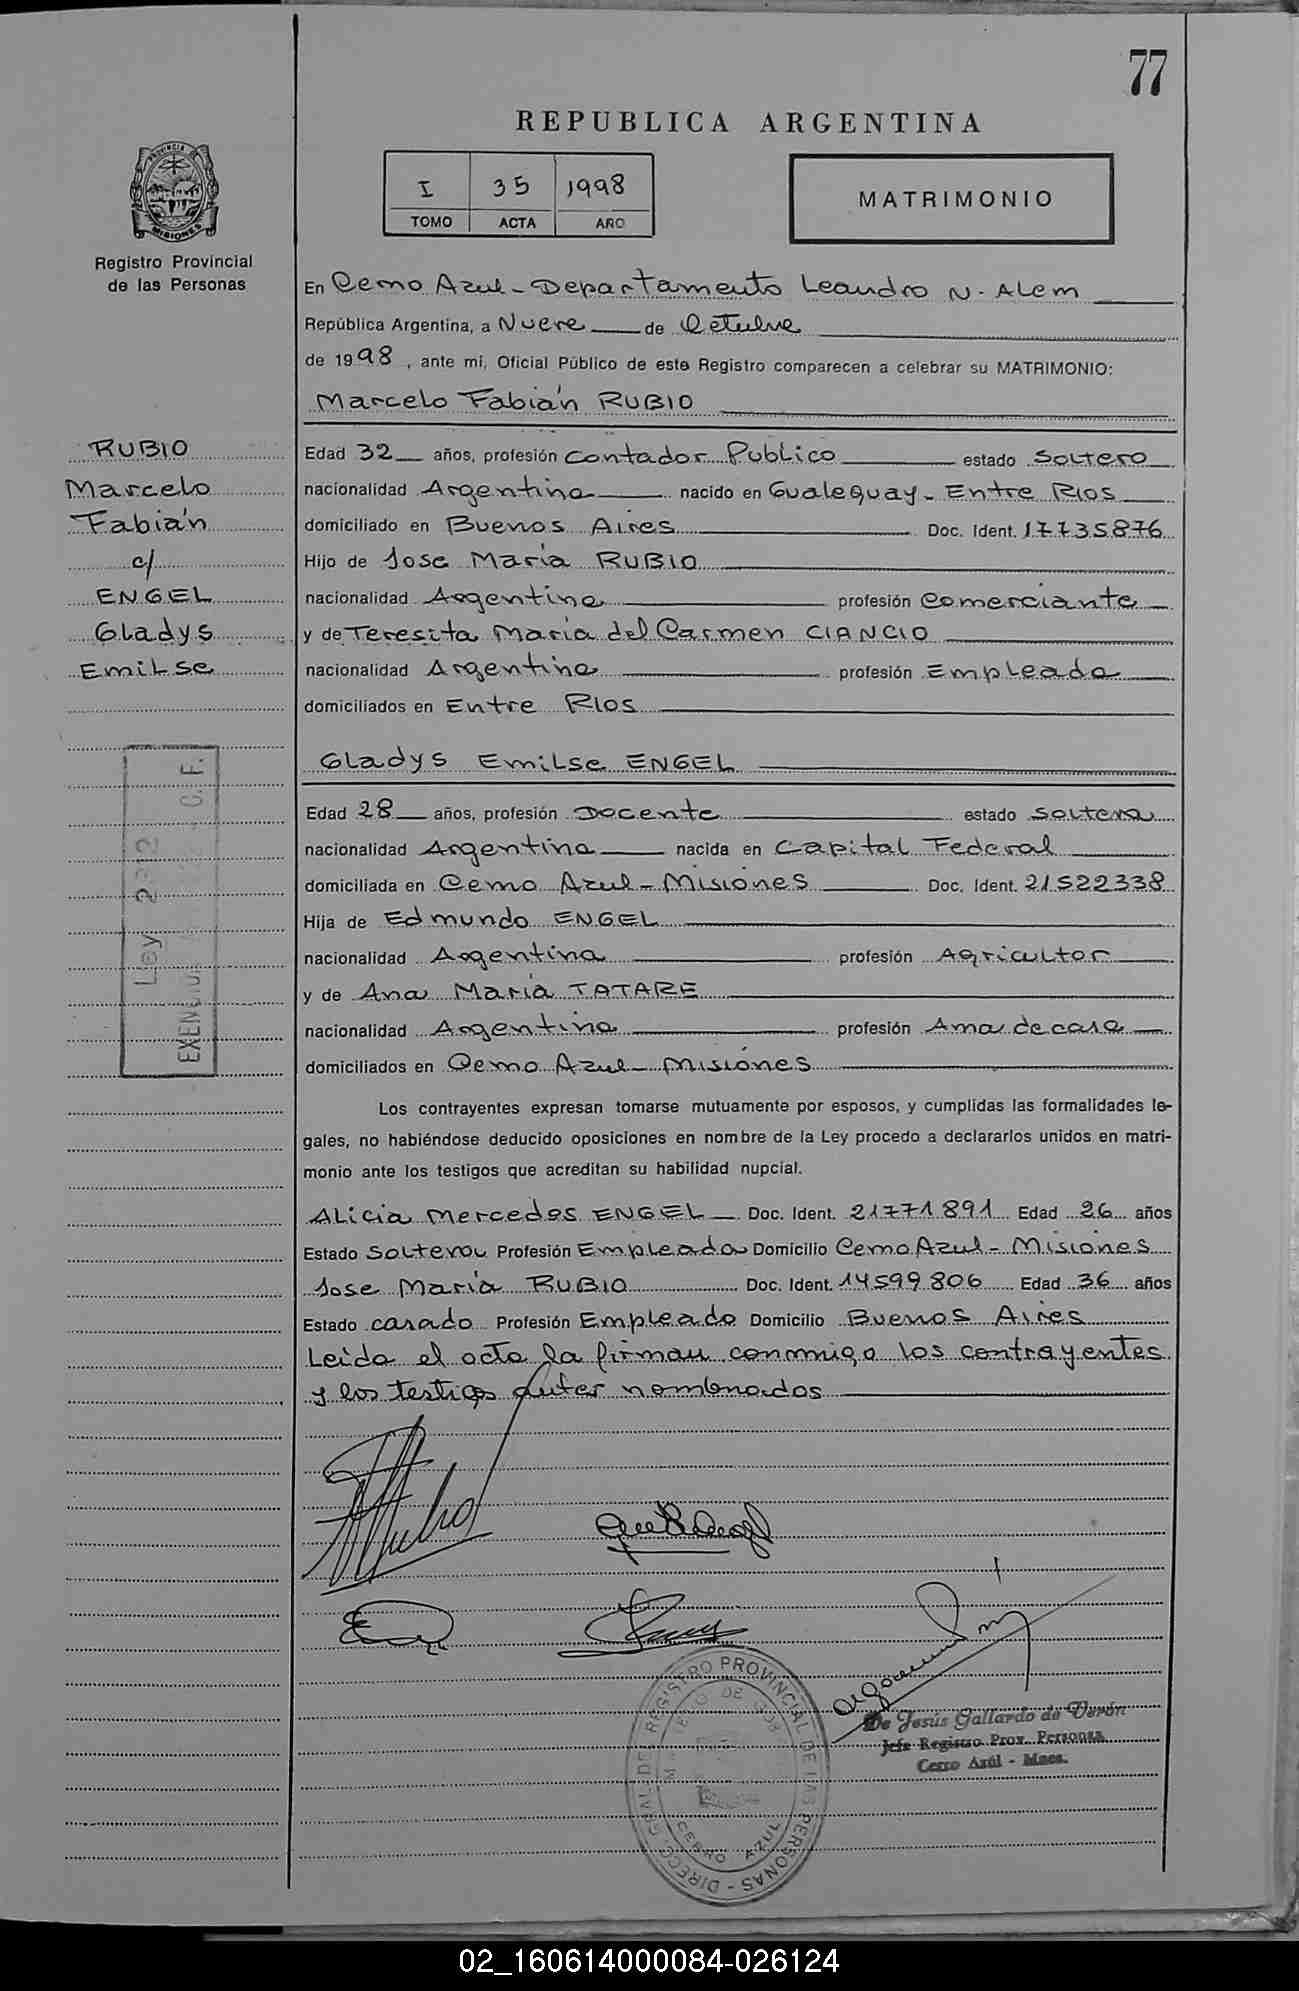 77
REPUBLICA ARGENTINA
I 35 1998
TOMO ACTA AÑO
MATRIMONIO
PROVINCIA DE
MISIONES
Registro Provincial
de las Personas
En Cerro Azul - Departamento Leandro N. Alem
República Argentina, a Nueve de Octubre
de 1998, ante mí, Oficial Público de este Registro comparecen a celebrar su MATRIMONIO:
Marcelo Fabián RUBIO
RUBIO
Marcelo
Fabián
c/
ENGEL
Gladys
Emilse
Edad 32 años, profesión Contador Público estado Soltero
nacionalidad Argentina nacido en Gualeguay - Entre Ríos
domiciliado en Buenos Aires Doc. Ident. 17735876
Hijo de Jose María RUBIO
nacionalidad Argentina profesión Comerciante
y de Teresita María del Carmen CIANCIO
nacionalidad Argentina profesión Empleada
domiciliados en Entre Ríos
Gladys Emilse ENGEL
Edad 28 años, profesión Docente estado Soltera
nacionalidad Argentina nacida en Capital Federal
domiciliada en Cerro Azul - Misiones Doc. Ident. 21522338
Hija de Edmundo ENGEL
nacionalidad Argentina profesión Agricultor
y de Ana María TATARE
nacionalidad Argentina profesión Ama de casa
domiciliados en Cerro Azul - Misiones
Ley
C.F.
Los contrayentes expresan tomarse mutuamente por esposos, y cumplidas las formalidades le-
gales, no habiéndose deducido oposiciones en nombre de la Ley procedo a declararlos unidos en matri-
monio ante los testigos que acreditan su habilidad nupcial.
Alicia Mercedes ENGEL Doc. Ident. 21771891 Edad 26 años
Estado Soltera Profesión Empleada Domicilio Cerro Azul - Misiones
Jose María RUBIO Doc. Ident. 14599806 Edad 36 años
Estado casado Profesión Empleado Domicilio Buenos Aires
Leída el acta la firman conmigo los contrayentes
y los testigos antes nombrados
De Jesús Gallardo de Verón
Jefe Registro Prov. Personas
Cerro Azúl - Mnes.
DIREC. GRAL. DEL REGISTRO PROVINCIAL DE LAS PERSONAS
CERRO AZUL
02_160614000084-026124